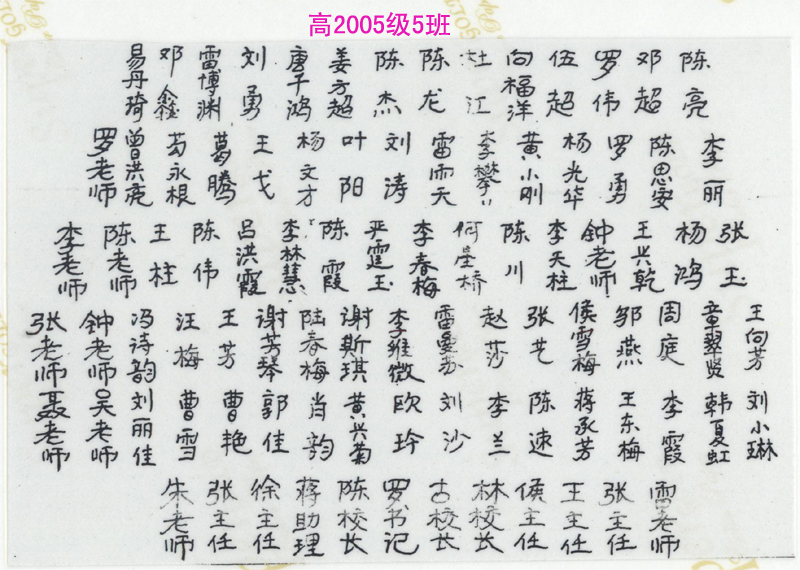 高2005级5班
易丹琦 邓鑫 雷博渊 刘勇 唐千鸿 姜方超 陈杰 陈龙 杜江 向福洋 伍超 罗伟 邓超 陈亮
罗老师 曾洪亮 苟永根 葛腾 王戈 杨文才 叶阳 刘涛 雷雨天 李攀 黄小刚 杨光华 罗勇 陈思安 李丽
李老师 陈老师 王柱 陈伟 吕洪霞 李林慧 陈霞 严霆玉 李春梅 何星桥 陈川 李天柱 钟老师 王兴乾 杨鸿 张玉
张老师 钟老师 冯诗韵 汪梅 王芳 谢芳琴 陆春梅 谢斯琪 李维微 雷曼苏 赵莎 张艺 侯雪梅 邹燕 周庭 童翠贤 王向芳
聂老师 吴老师 刘丽佳 曹雪 曹艳 郭佳 肖韵 黄兴菊 欧玲 刘沙 李兰 陈速 蒋承芳 王东梅 李霞 韩夏虹 刘小琳
朱老师 张主任 徐主任 蒋助理 陈校长 罗书记 古校长 林校长 侯主任 王主任 张主任 雷老师